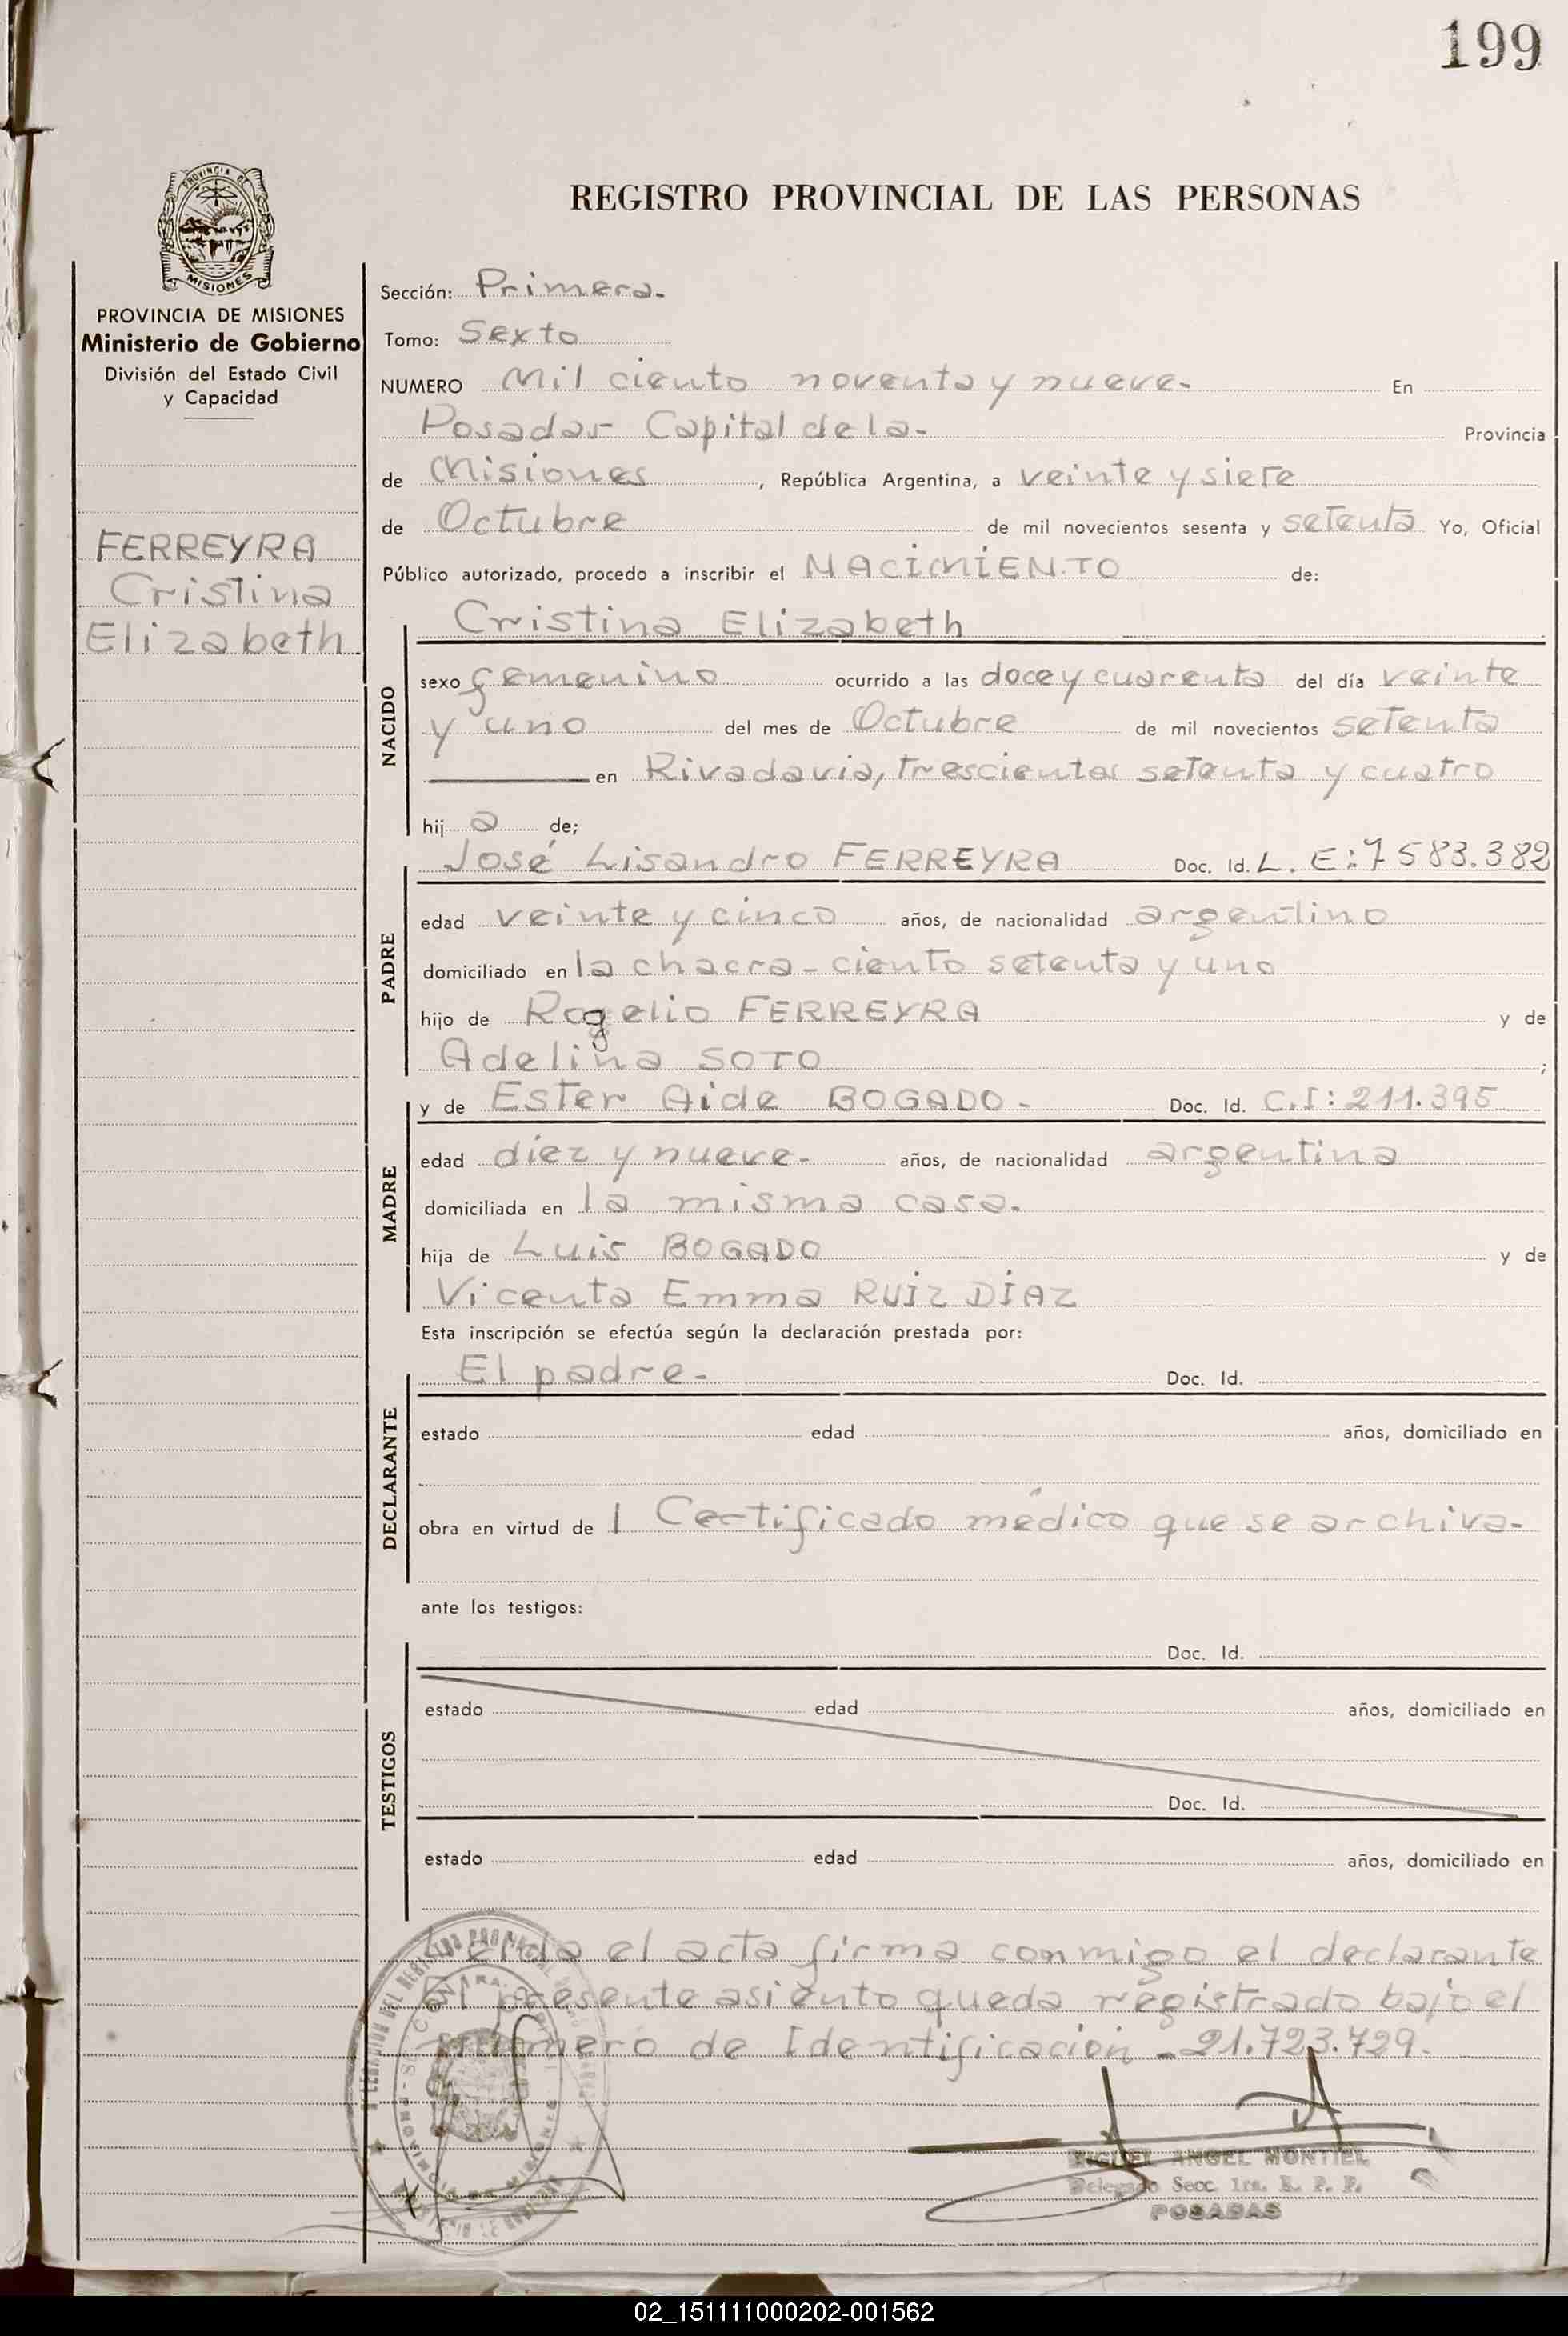 199
REGISTRO PROVINCIAL DE LAS PERSONAS
PROVINCIA DE MISIONES
PROVINCIA DE MISIONES
Ministerio de Gobierno
División del Estado Civil
y Capacidad
FERREYRA
Cristina
Elizabeth
Sección: Primera.
Tomo: Sexto
NUMERO Mil ciento noventa y nueve- En
Posadas Capital de la- Provincia
de Misiones, República Argentina, a veinte y siete
de Octubre de mil novecientos sesenta y setenta Yo, Oficial
Público autorizado, procedo a inscribir el NACIMIENTO de:
Cristina Elizabeth
NACIDO
sexo femenino ocurrido a las doce y cuarenta del día veinte
y uno del mes de Octubre de mil novecientos setenta
en Rivadavia, trescientos setenta y cuatro
hij a de;
José Lisandro FERREYRA Doc. Id. L. E: 7583.382
PADRE
edad veinte y cinco años, de nacionalidad argentino
domiciliado en la chacra - ciento setenta y uno
hijo de Rogelio FERREYRA y de
Adelina SOTO ;
y de Ester Aide BOGADO - Doc. Id. C.I: 211.395
MADRE
edad diez y nueve- años, de nacionalidad argentina
domiciliada en la misma casa.
hija de Luis BOGADO y de
Vicenta Emma RUIZ DIAZ
Esta inscripción se efectúa según la declaración prestada por:
El padre- Doc. Id.
DECLARANTE
estado edad años, domiciliado en
obra en virtud de 1 Certificado médico que se archiva-
ante los testigos:
Doc. Id.
TESTIGOS
estado edad años, domiciliado en
Doc. Id.
estado edad años, domiciliado en
Leída el acta firma conmigo el declarante
El presente asiento queda registrado bajo el
número de Identificación - 21.723.729.
MIGUEL ANGEL MONTIEL
Delegado Secc. 1ra. R. P. P.
POSADAS
02_151111000202-001562